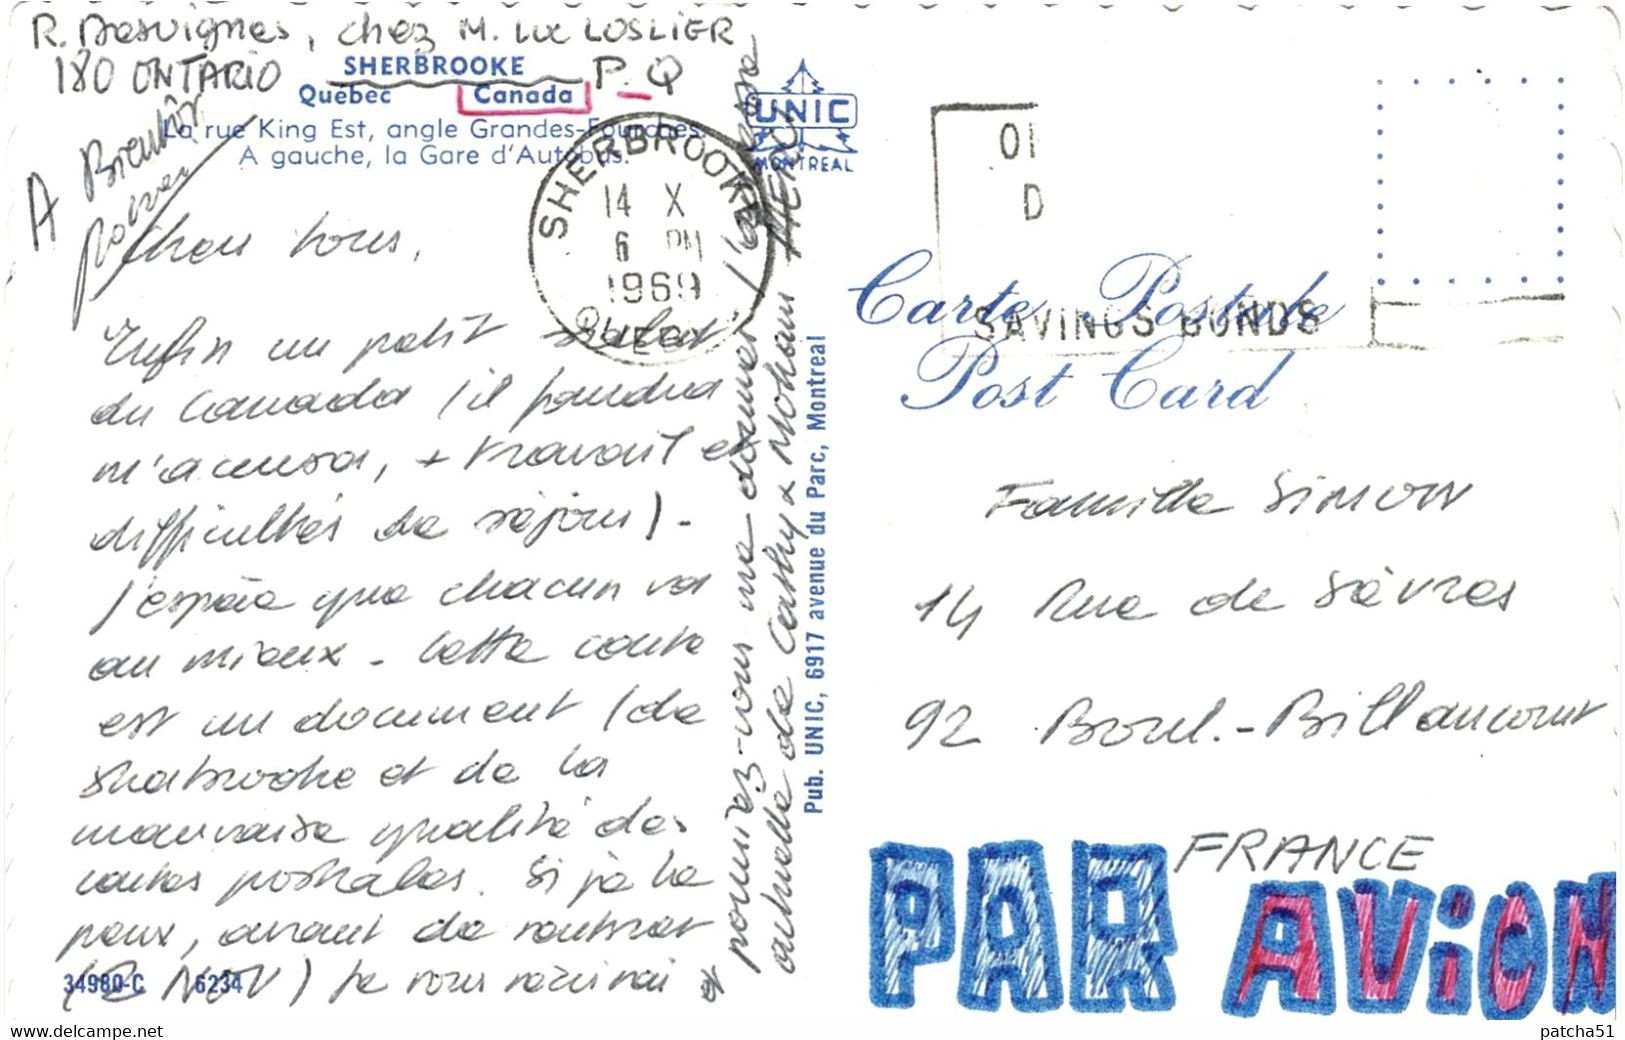 R. Desvignes, chez M. Luc LOSLIER
180 ONTARIO SHERBROOKE P-Q
Québec Canada
La rue King Est, angle Grandes-Fourches.
A gauche, la Gare d'Autobus.
A Bientôt
Chers tous,
Enfin un petit salut
du Canada (il faudra
m'excuser, + travail et
difficultés de séjour) -
J'espère que chacun va
au mieux - Cette carte
est un document (de
Sherbrooke et de la
mauvaise qualité des
cartes postales. Si je le
peux, avant de rentrer
(2 NOV) je vous récrirai et
pourriez-vous me donner l'adresse
actuelle de Cathy & Moham
SHERBROOKE
14 X
6 PM
1969
QUEBEC
UNIC
MONTREAL
Pub. UNIC, 6917 avenue du Parc, Montreal
34980-C 6234
SAVINGS BONDS
Carte Postale
Post Card
Famille SIMON
14 Rue de Sèvres
92 Boul.-Billancourt
FRANCE
PAR AVION
patcha51